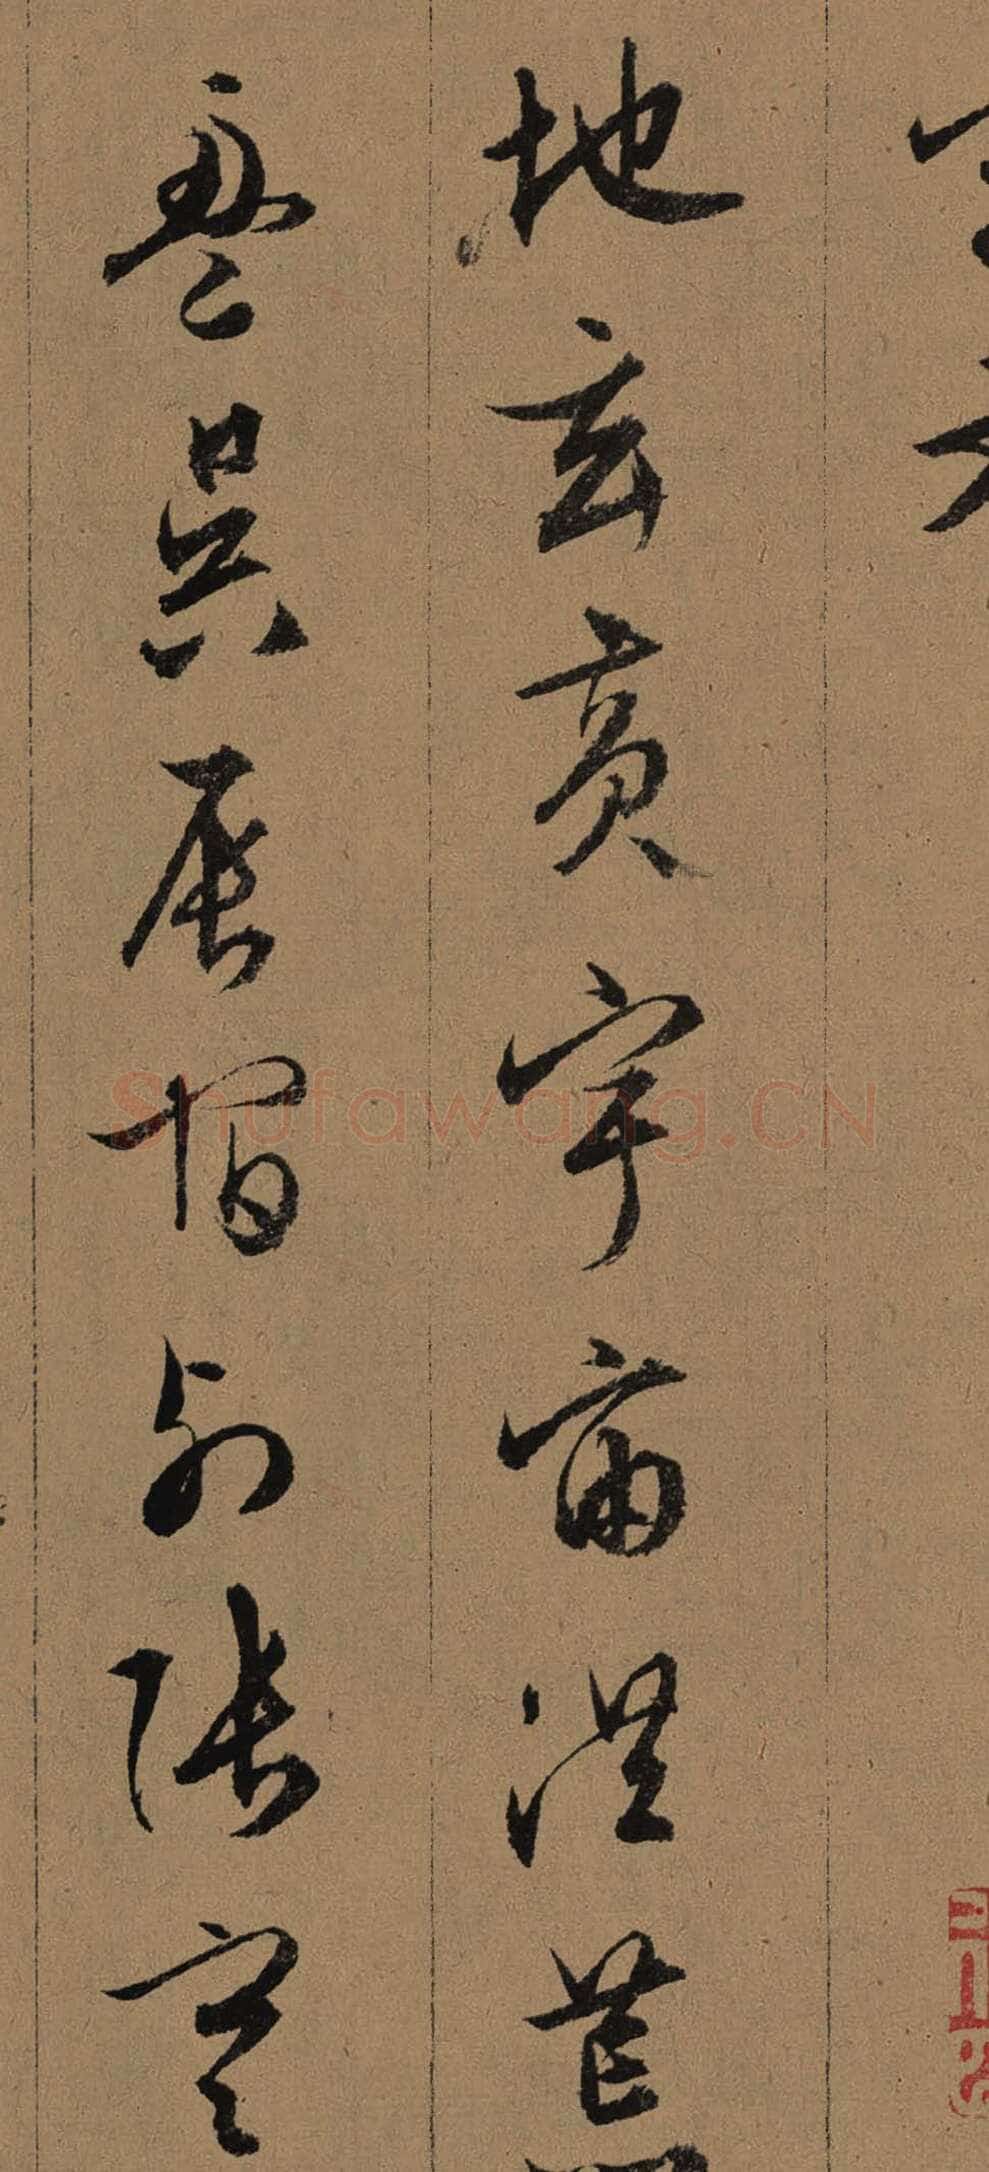 地玄黄宇宙洪荒
盈昃辰宿列張寒
Shufawang.CN